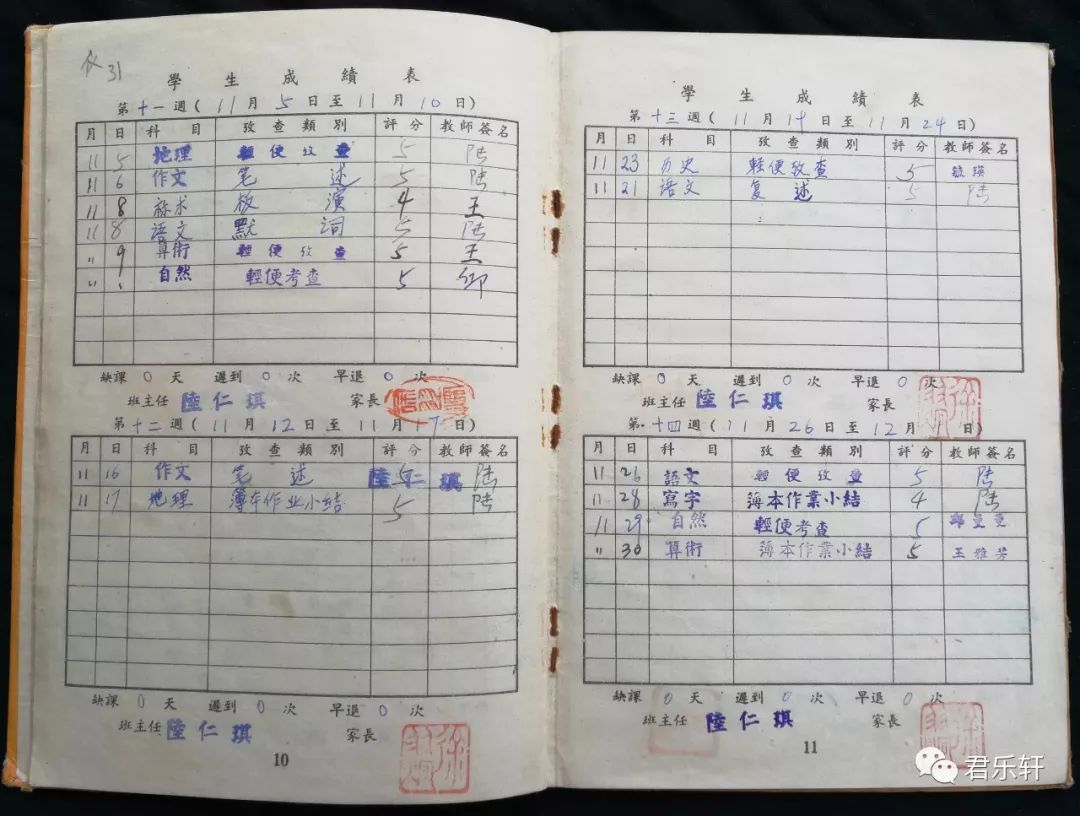 31
學生成績表
第十一週(11月5日至11月10日)
月 日 科目 攷查類別 評分 教師簽名
11 5 地理 輕便攷查 5 陆
11 6 作文 笔述 5 陆
11 8 板演 4 王
11 8 语文 默词 5 陆
〃 9 算術 輕便攷查 5 王
〃 〃 自然 輕便考查 5
缺課0天 遲到0次 早退0次
班主任 陸仁琪 家長
第十二週(11月12日至11月17日)
月 日 科目 攷查類別 評分 教師簽名
11 16 作文 笔述 5 陸仁琪 陆
11 17 地理 簿本作业小结 5 陆
缺課0天 遲到0次 早退0次
班主任 陸仁琪 家長
10
學生成績表
第十三週(11月19日至11月24日)
月 日 科目 攷查類別 評分 教師簽名
11 23 历史 輕便攷查 5 毓瑛
11 21 语文 复述 5 陆
缺課0天 遲到0次 早退0次
班主任 陸仁琪 家長
第十四週(11月26日至12月1日)
月 日 科目 攷查類別 評分 教師簽名
11 26 語文 輕便攷查 5 陆
11 28 寫字 簿本作業小結 4 陆
11 29 自然 輕便考查 5
〃 30 算術 簿本作業小結 5 王雅芳
缺課0天 遲到0次 早退0次
班主任 陸仁琪 家長
11
君乐轩